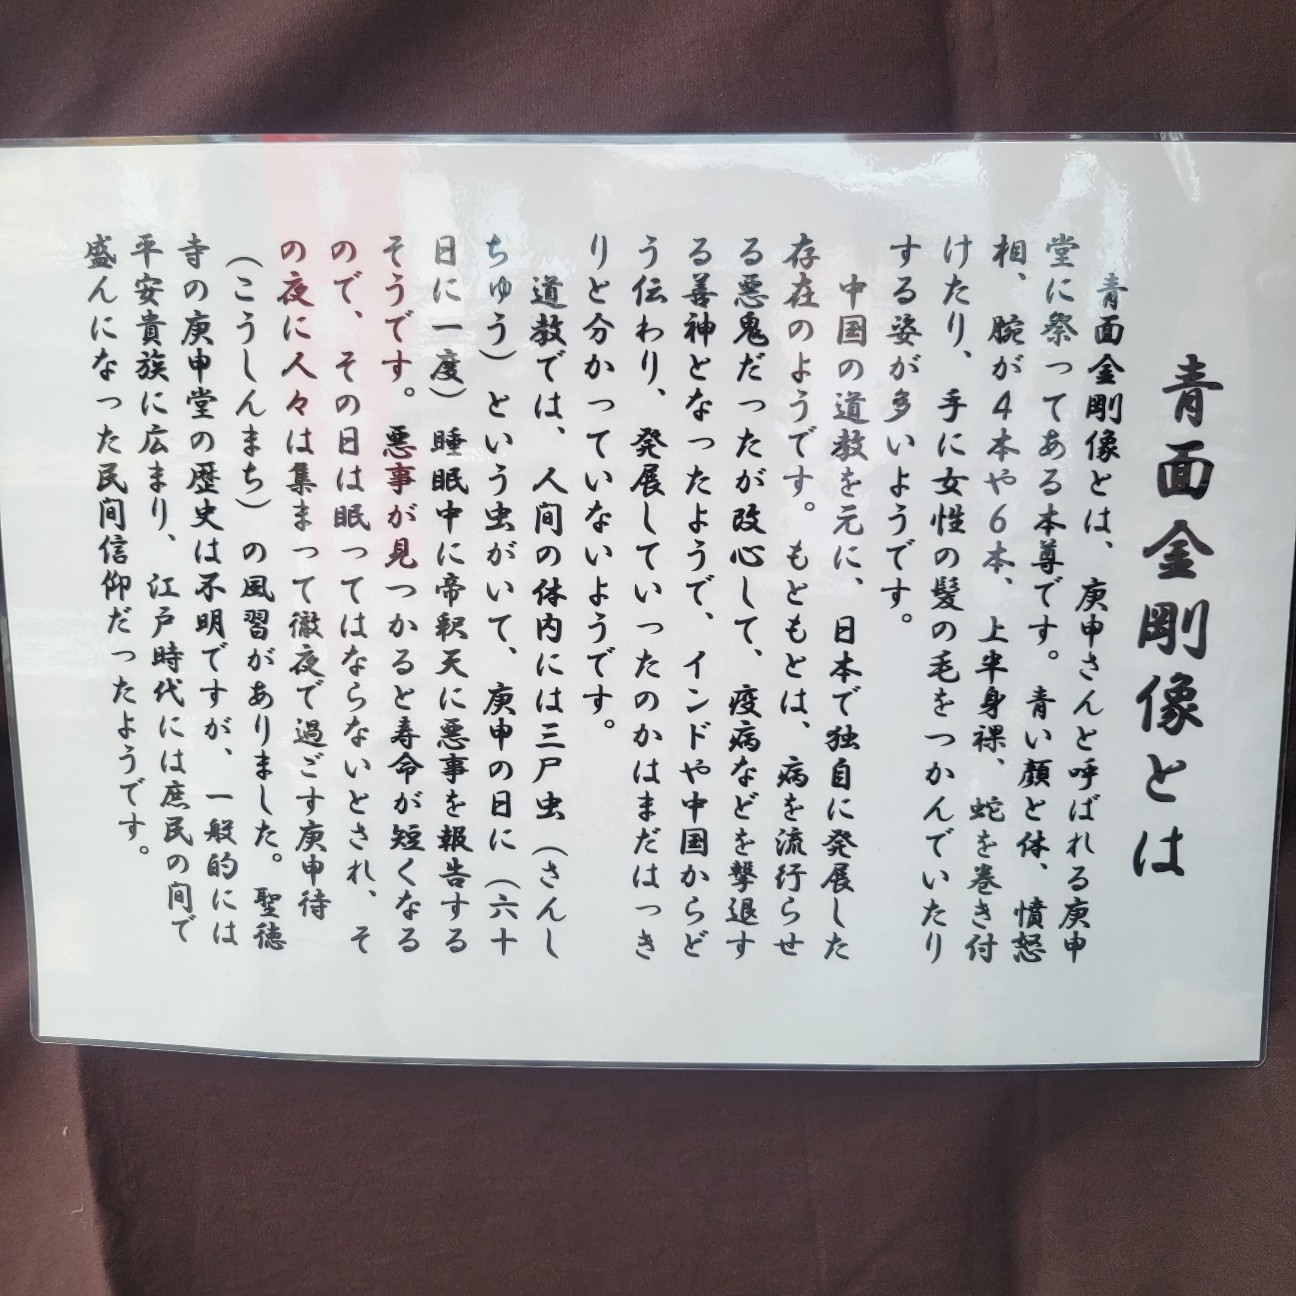 青面金剛像とは
青面金剛像とは、庚申さんと呼ばれる庚申
堂に祭ってある本尊です。青い顔と体、憤怒
相、腕が4本や6本、上半身裸、蛇を巻き付
けたり、手に女性の髪の毛をつかんでいたり
する姿が多いようです。
中国の道教を元に、日本で独自に発展した
存在のようです。もともとは、病を流行らせ
る悪鬼だったが改心して、疫病などを撃退す
る善神となったようで、インドや中国からど
う伝わり、発展していったのかはまだはっき
りと分かっていないようです。
道教では、人間の体内には三尸虫(さんし
ちゅう)という虫がいて、庚申の日に(六十
日に一度)睡眠中に帝釈天に悪事を報告する
そうです。悪事が見つかると寿命が短くなる
ので、その日は眠ってはならないとされ、そ
の夜に人々は集まって徹夜で過ごす庚申待
(こうしんまち)の風習がありました。聖徳
寺の庚申堂の歴史は不明ですが、一般的には
平安貴族に広まり、江戸時代には庶民の間で
盛んになった民間信仰だったようです。